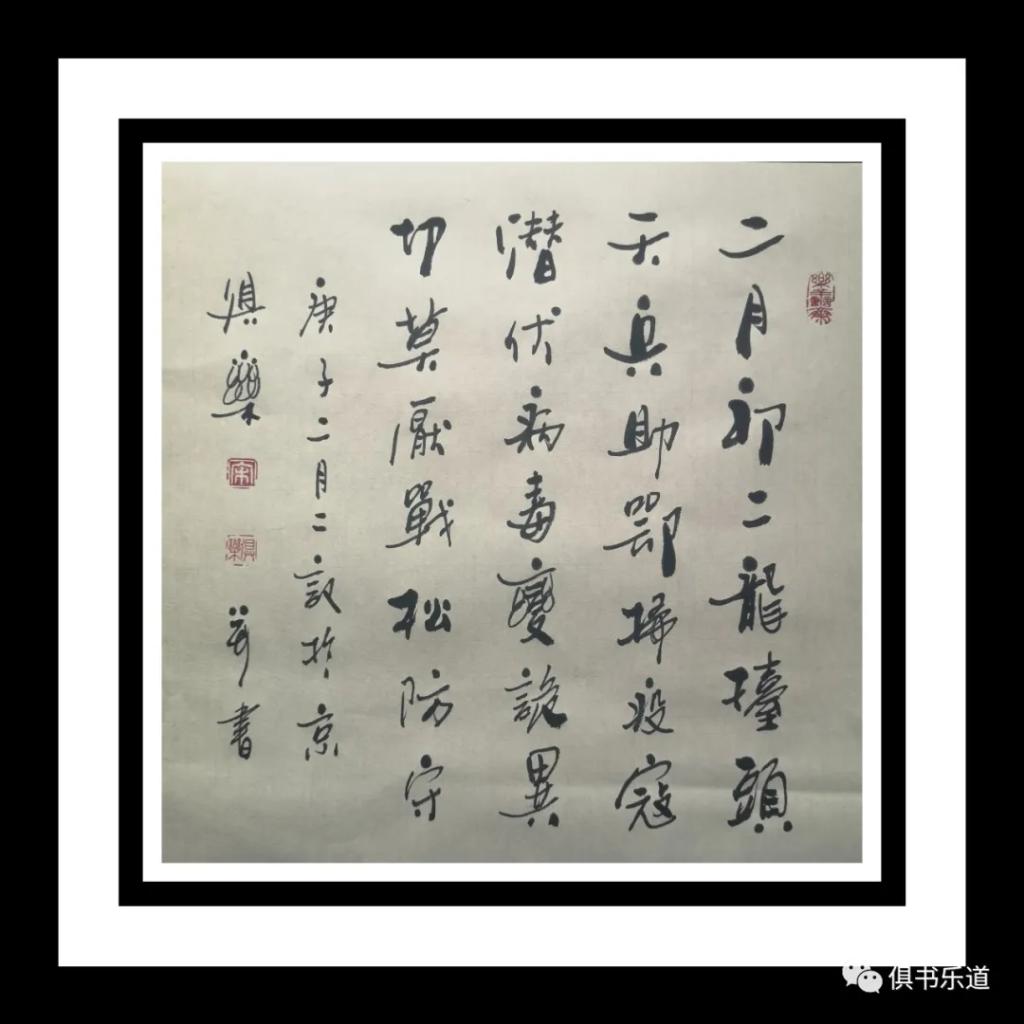 二月卯二龍擡頭
天兵助鄂掃疫寇
潛伏病毒變詭異
切莫厭戰松防守
庚子二月二於京
俱樂並書
俱书乐道